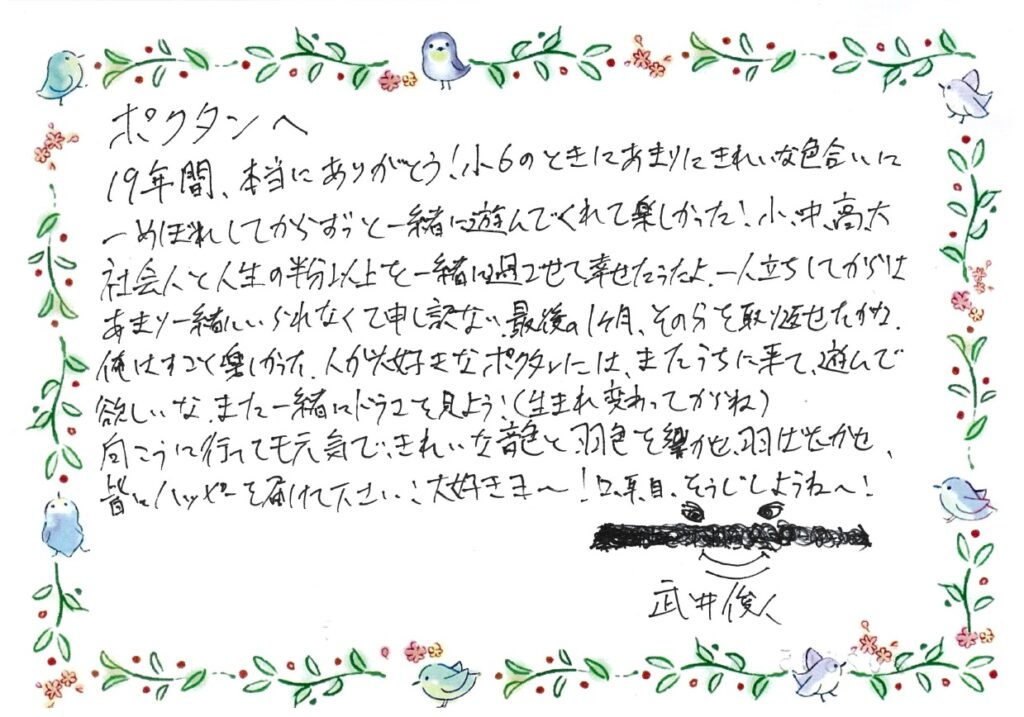 ポクタンへ
19年間、本当にありがとう!小6のときにあまりにきれいな色合いに
一めぼれしてからずっと一緒に遊んでくれて楽しかった!小、中、高、大
社会人と人生の半分以上を一緒に過ごせて幸せだったよ.一人立ちしてからは
あまり一緒にいられなくて申し訳ない.最後の1ケ月、その分を取り返せたかな.
俺はすごく楽しかった.人が大好きなポクタンには、またうちに来て、遊んで
欲しいな.また一緒にドラゴを見よう!(生まれ変わってからね)
向こうに行っても元気で、きれいな音色と羽色を響かせ、羽ばたかせ、
皆にハッピーを届けて下さい!大好きよ〜!そうじしようね〜!
武井俊人